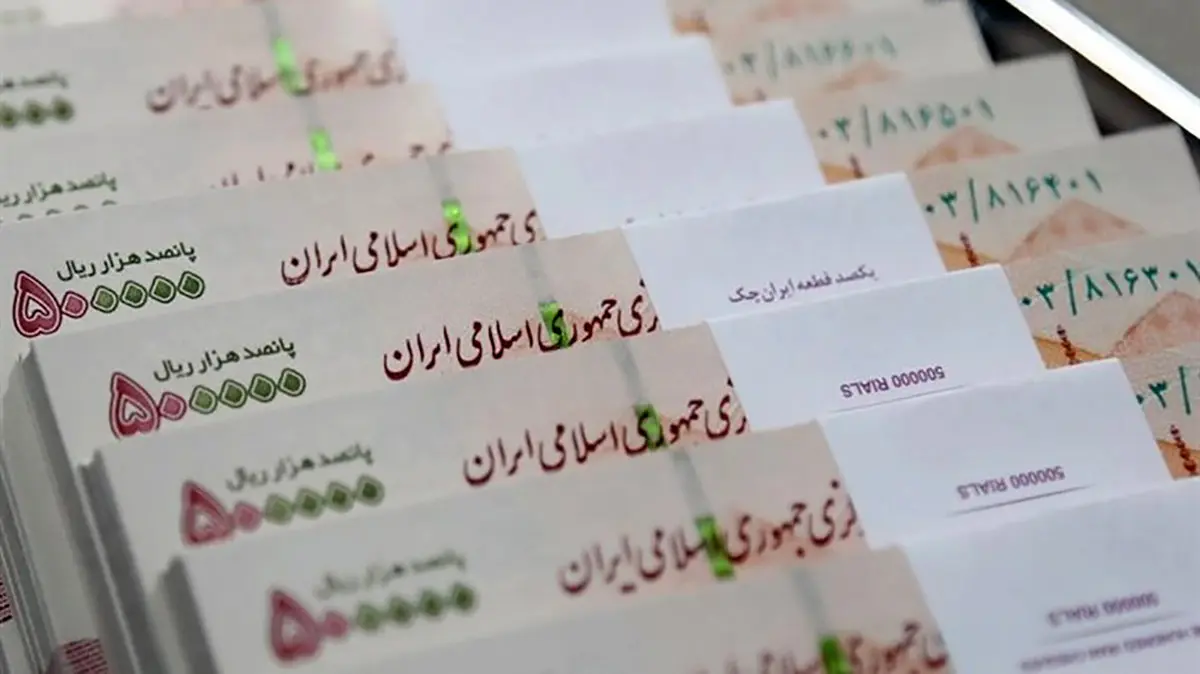 جمهوری اسلامی ایران
۰۳/۸۱۶۶۰۱
پانصد هزار ریال
۰۳/۸۱۶۵۰۱
پانصد هزار ریال
۵۰۰۰۰۰
جمهوری اسلامی ایران
۰۳/۸۱۶۴۰۱
یکصد قطعه ایران چک
پانصد هزار ریال
۵۰۰۰۰۰
جمهوری اسلامی ایران
۰۳/۸۱۶۳۰۱
500000 RIALS
پانصد هزار ریال
۵۰۰۰۰۰
جمهوری اسلامی ایران
500000 RIALS
پانصد هزار ریال
۵۰۰۰۰۰
جمهوری اسلامی ایران
500000 RIALS
جمهوری اسلامی ایران